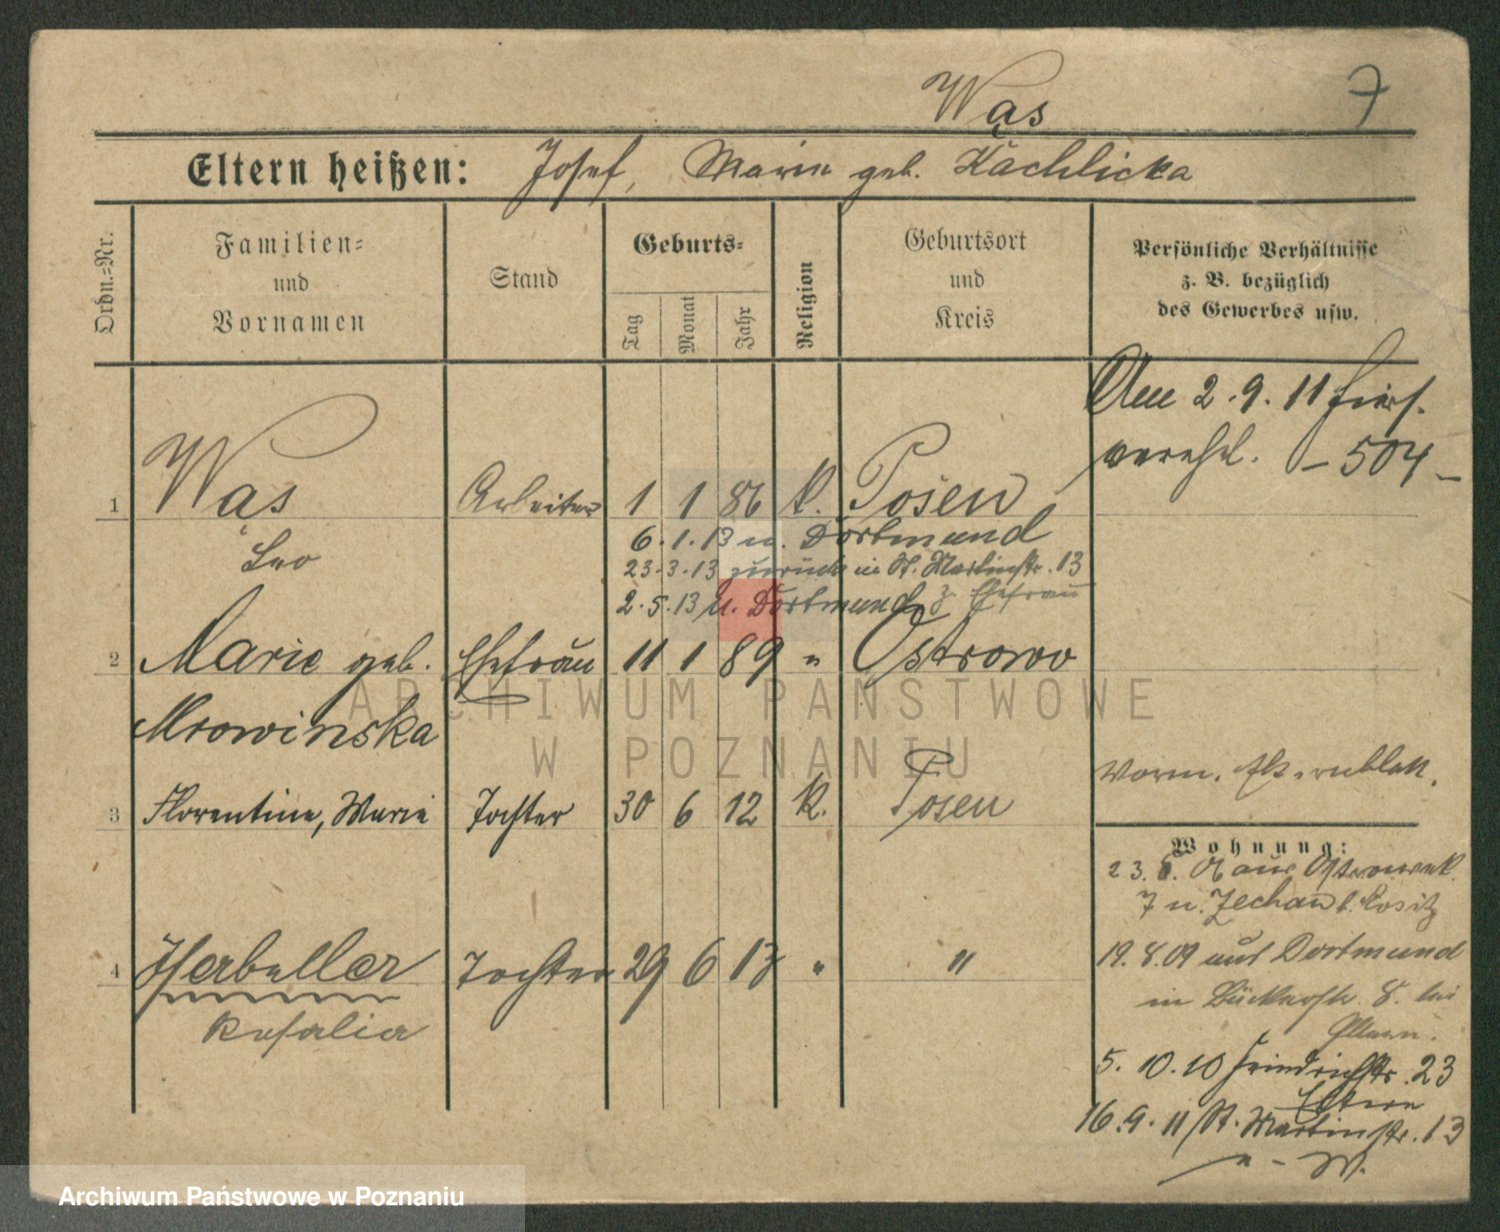 Wąs 7
Eltern heißen: Josef, Marie geb. Kachlicka
Ordn.-Nr.
Familien-
und
Vornamen
Stand
Geburts-
Tag
Monat
Jahr
Religion
Geburtsort
und
Kreis
Persönliche Verhältnisse
z. B. bezüglich
des Gewerbes usw.
Am 2.9.11 hiers.
verehel. – 504 –
1 Wąs Arbeiter 1 1 86 k. Posen
Leo
6.1.13 n. Dortmund
23.3.13 zurück in St. Martinstr. 13
2.5.13 n. Dortmund z. Ehefrau
2 Marie geb. Ehefrau 11 1 89 " Ostrowo
Mrowinska
ARCHIWUM PAŃSTWOWE
W POZNANIU
Vorm.
3 Florentine, Marie Tochter 30 6 12 k. Posen
Wohnung:
23. aus
7 n. Zechau b.
4 Tochter 29 6 13 " "
Rosalia
19.8.09 aus Dortmund
in 8. bei
Eltern.
5.10.10 23
Eltern
16.9.11 St. Martinstr. 13
n. W.
Archiwum Państwowe w Poznaniu